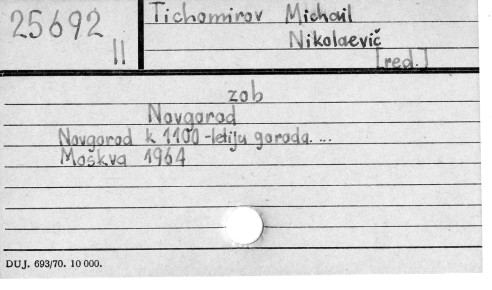 25692
II
Tichomirov Michail
Nikolaevič
[red.]
zob
Novgorod
Novgorod k 1100-letiju goroda. ...
Moskva 1964
DUJ. 693/70. 10 000.